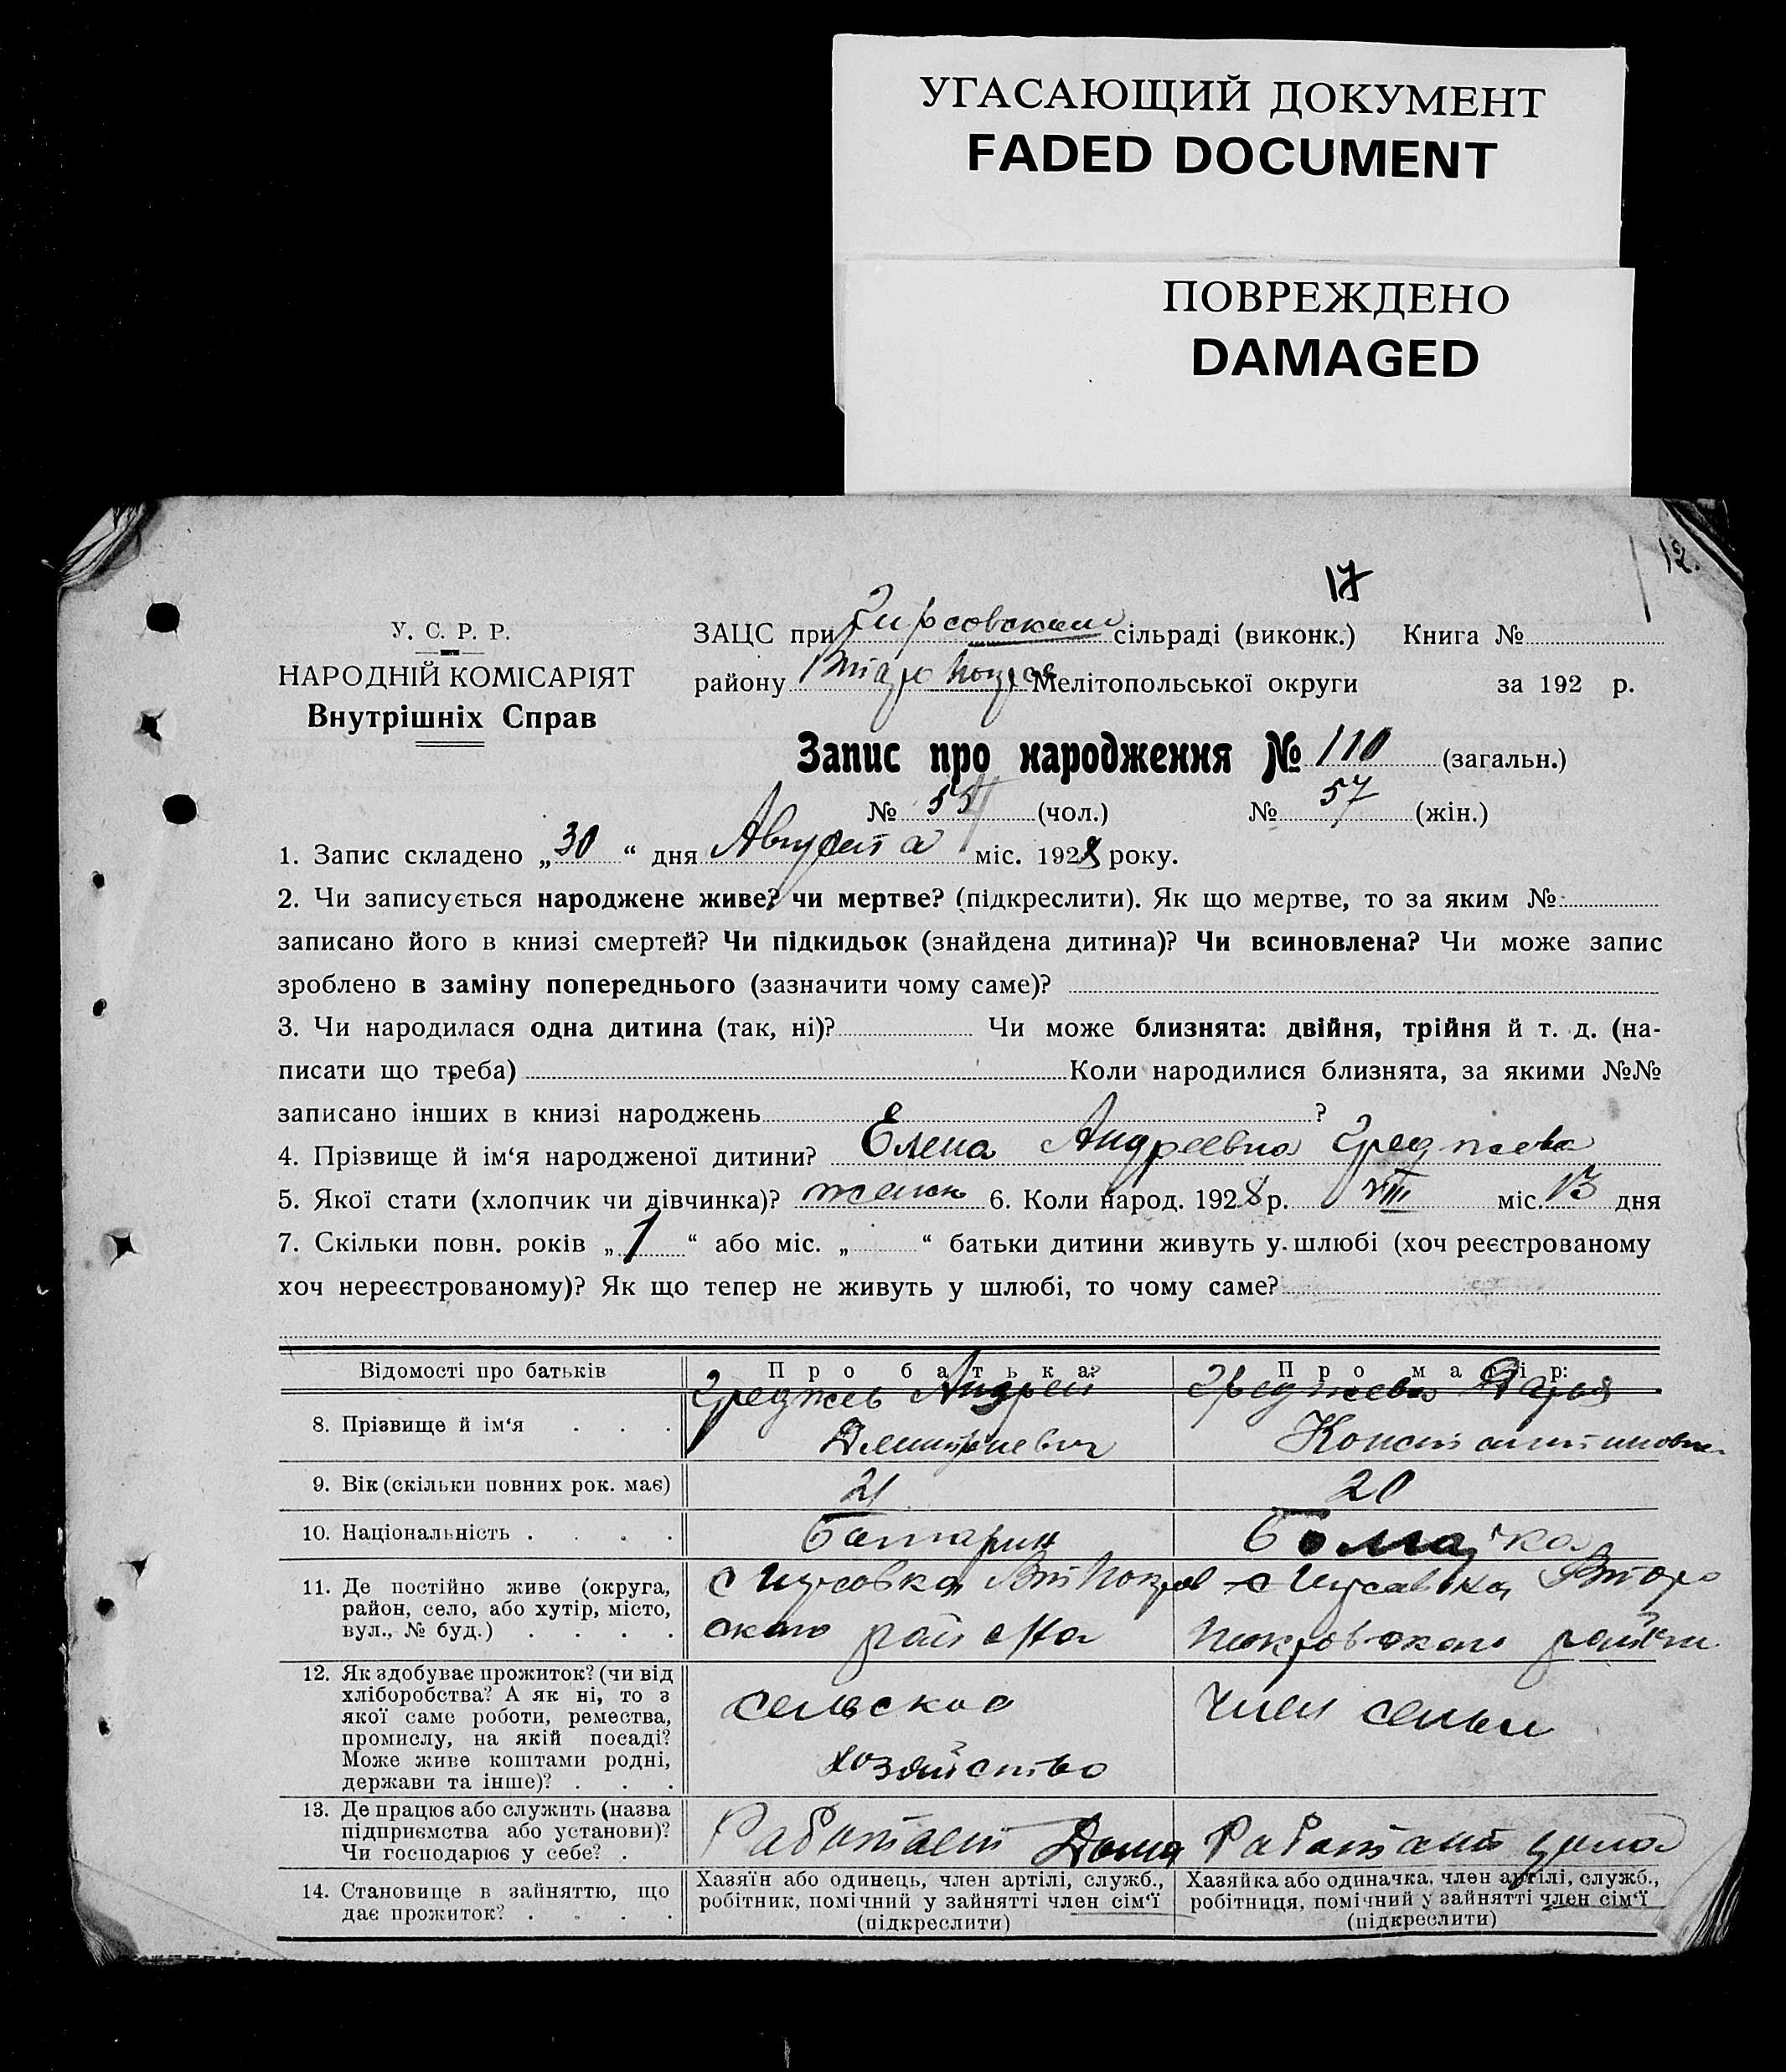 УГАСАЮЩИЙ ДОКУМЕНТ
FADED DOCUMENT
ПОВРЕЖДЕНО
DAMAGED
12.
17
У. С. Р. Р.
НАРОДНІЙ КОМІСАРІЯТ
Внутрішніх Справ
ЗАЦС при Гирсовском сільраді (виконк.) Книга №
району Мелітопольської округи за 192 р.
Запис про народження № 110 (загальн.)
№ (чол.) № 57 (жін.)
1. Запис складено „30“ дня Августа міс. 1928 року.
2. Чи записується народжене живе? чи мертве? (підкреслити). Як що мертве, то за яким №
записано його в книзі смертей? Чи підкидьок (знайдена дитина)? Чи всиновлена? Чи може запис
зроблено в заміну попереднього (зазначити чому саме)?
3. Чи народилася одна дитина (так, ні)? Чи може близнята: двійня, трійня й т. д. (на-
писати що треба) Коли народилися близнята, за якими №№
записано інших в книзі народжень ?
4. Прізвище й ім‘я народженої дитини? Елена Андреевна
5. Якої стати (хлопчик чи дівчинка)? женск 6. Коли народ. 1928 р. VIII міс. 13 дня
7. Скільки повн. років „1“ або міс. „ “ батьки дитини живуть у шлюбі (хоч реєстрованому
хоч нереєстрованому)? Як що тепер не живуть у шлюбі, то чому саме?
Відомості про батьків Про батька: Про матір:
8. Прізвище й ім‘я . . . Андрей Дарья
Дмитриевич Константиновна
9. Вік (скільки повних рок. має) 21 20
10. Національність . . . . Болгарин
11. Де постійно живе (округа,
район, село, або хутір, місто,
вул., № буд.) . . . .
с Гирсовка
ского района
Второ
покровского района
12. Як здобуває прожиток? (чи від
хліборобства? А як ні, то з
якої саме роботи, ремества,
промислу, на якій посаді?
Може живе коштами родні,
держави та інше)? . . .
сельское
хозяйство
Член семьи
13. Де працює або служить (назва
підприємства або установи)?
Чи господарює у себе? .
Работает Дома
Работает дома
14. Становище в зайняттю, що
дає прожиток? . . . .
Хазяїн або одинець, член артілі, служб.,
робітник, помічний у зайнятті член сім‘ї
(підкреслити)
Хазяйка або одиначка, член артілі, служб.,
робітниця, помічний у зайнятті член сім‘ї
(підкреслити)